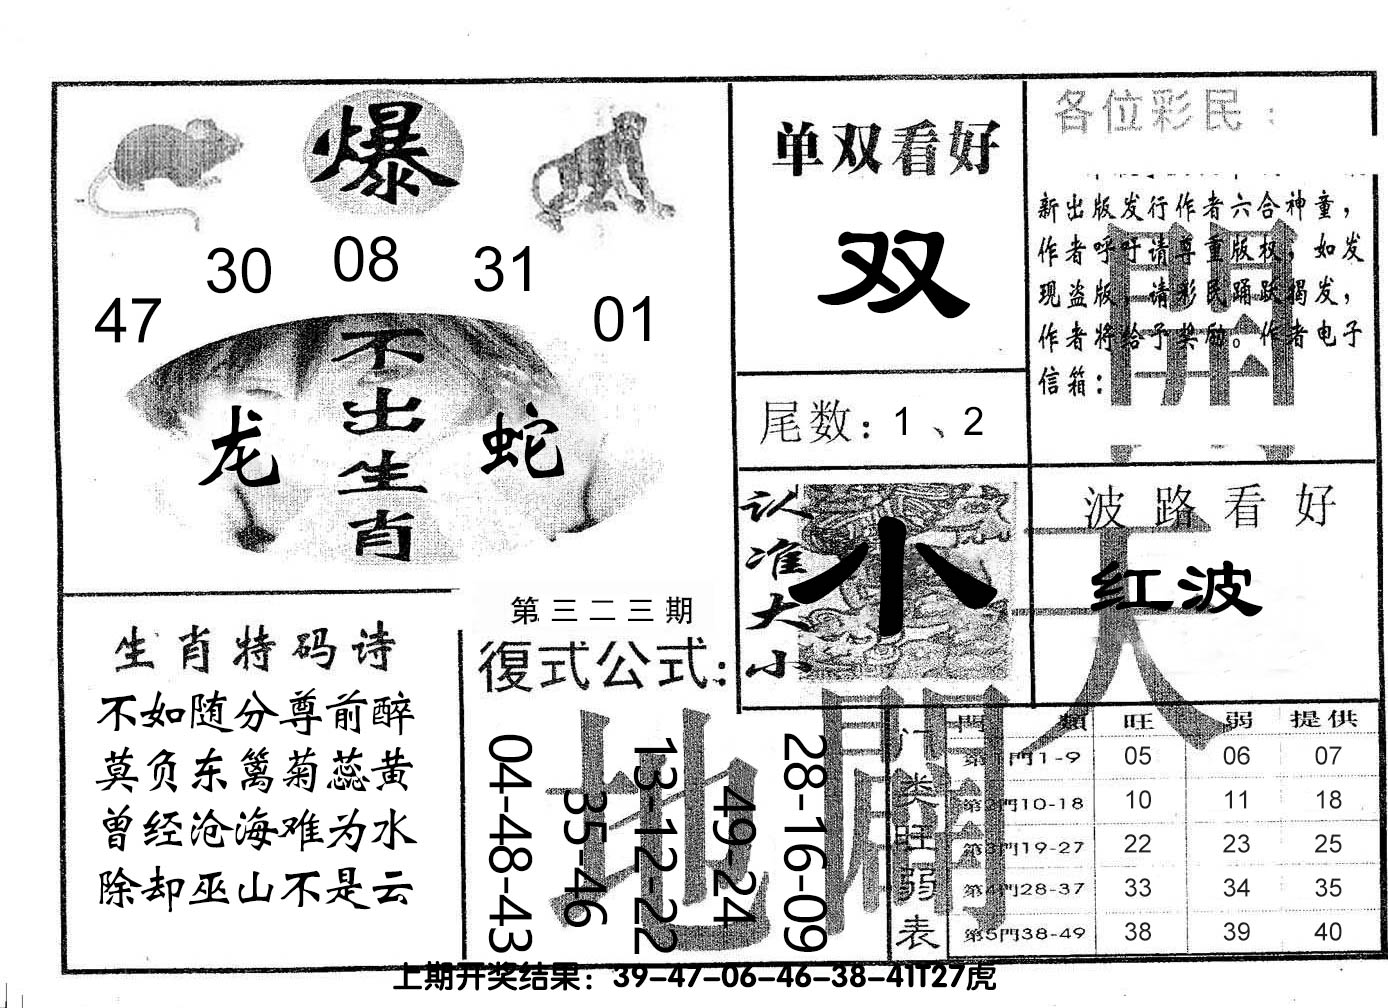 爆
30 08 31
47 01
不出生肖
龙 蛇
单双看好
双
尾数：1、2
各位彩民：
新出版发行作者六合神童，
作者呼吁请尊重版权，如发
现盗版，请彩民踊跃揭发，
作者将给予奖励。作者电子
信箱：
開
认准大小
小
波路看好
红波
天
生肖特码诗
不如随分尊前醉
莫负东篱菊蕊黄
曾经沧海难为水
除却巫山不是云
第三二三期
復式公式：
04-48-43
35-46
13-12-22
49-24
28-16-09
地
门类旺弱表
門類 旺 弱 提供
第1門1-9 05 06 07
第2門10-18 10 11 18
第3門19-27 22 23 25
第4門28-37 33 34 35
第5門38-49 38 39 40
上期开奖结果：39-47-06-46-38-41T27虎